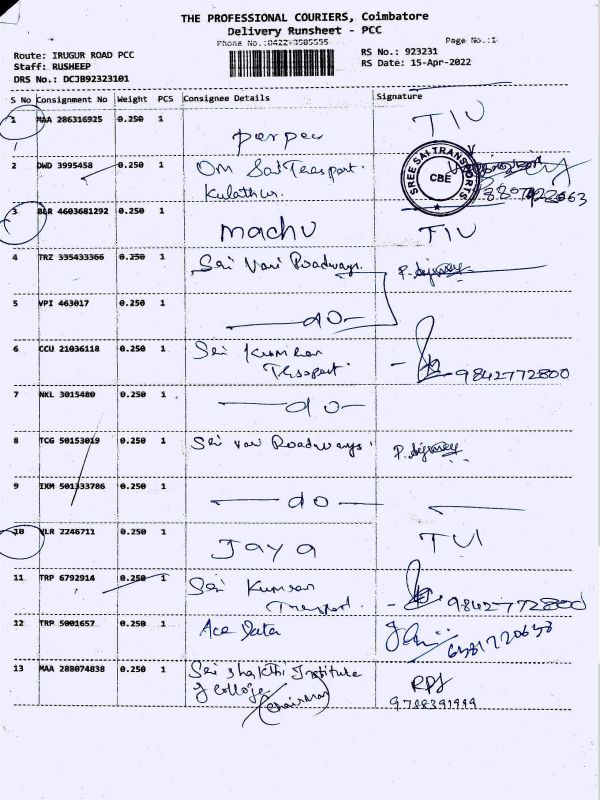 THE PROFESSIONAL COURIERS, Coimbatore
Delivery Runsheet - PCC
Phone No.:0422-3505555
Page No.:1
Route: IRUGUR ROAD PCC
Staff: RUSHEEP
DRS No.: DCJB92323101
RS No.: 923231
RS Date: 15-Apr-2022
S No Consignment No Weight PCS Consignee Details Signature
1 MAA 286316925 0.250 1
2 DWD 3995458 0.250 1 Om Sai Trasport.
Kulathur.
SREE SAI TRANSPORTS
CBE
3 BLR 4603681292 0.250 1 machu TIU
4 TRZ 335433366 0.250 1 Sri Vari Roadways.
5 VPI 463017 0.250 1 do
6 CCU 21036118 0.250 1 Sri Kumran
9842772800
7 NKL 3015480 0.250 1 do
8 TCG 50153019 0.250 1 Sri vari Roadways.
9 IXM 501333786 0.250 1 do
10 VLR 2246711 0.250 1 Jaya TUI
11 TRP 6792914 0.250 1 Sri Kumran
Trasport.
9842772800
12 TRP 5001657 0.250 1 Ace Data
13 MAA 288074838 0.250 1 Sri Shakthi Institute
of College
Chairman